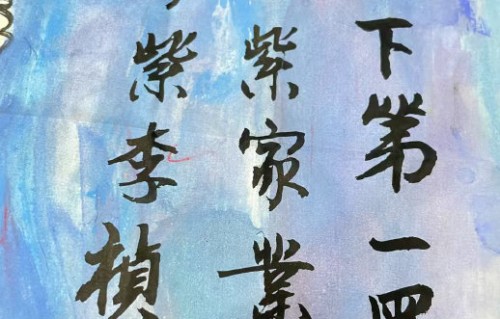 下第一
紫家業
紫李